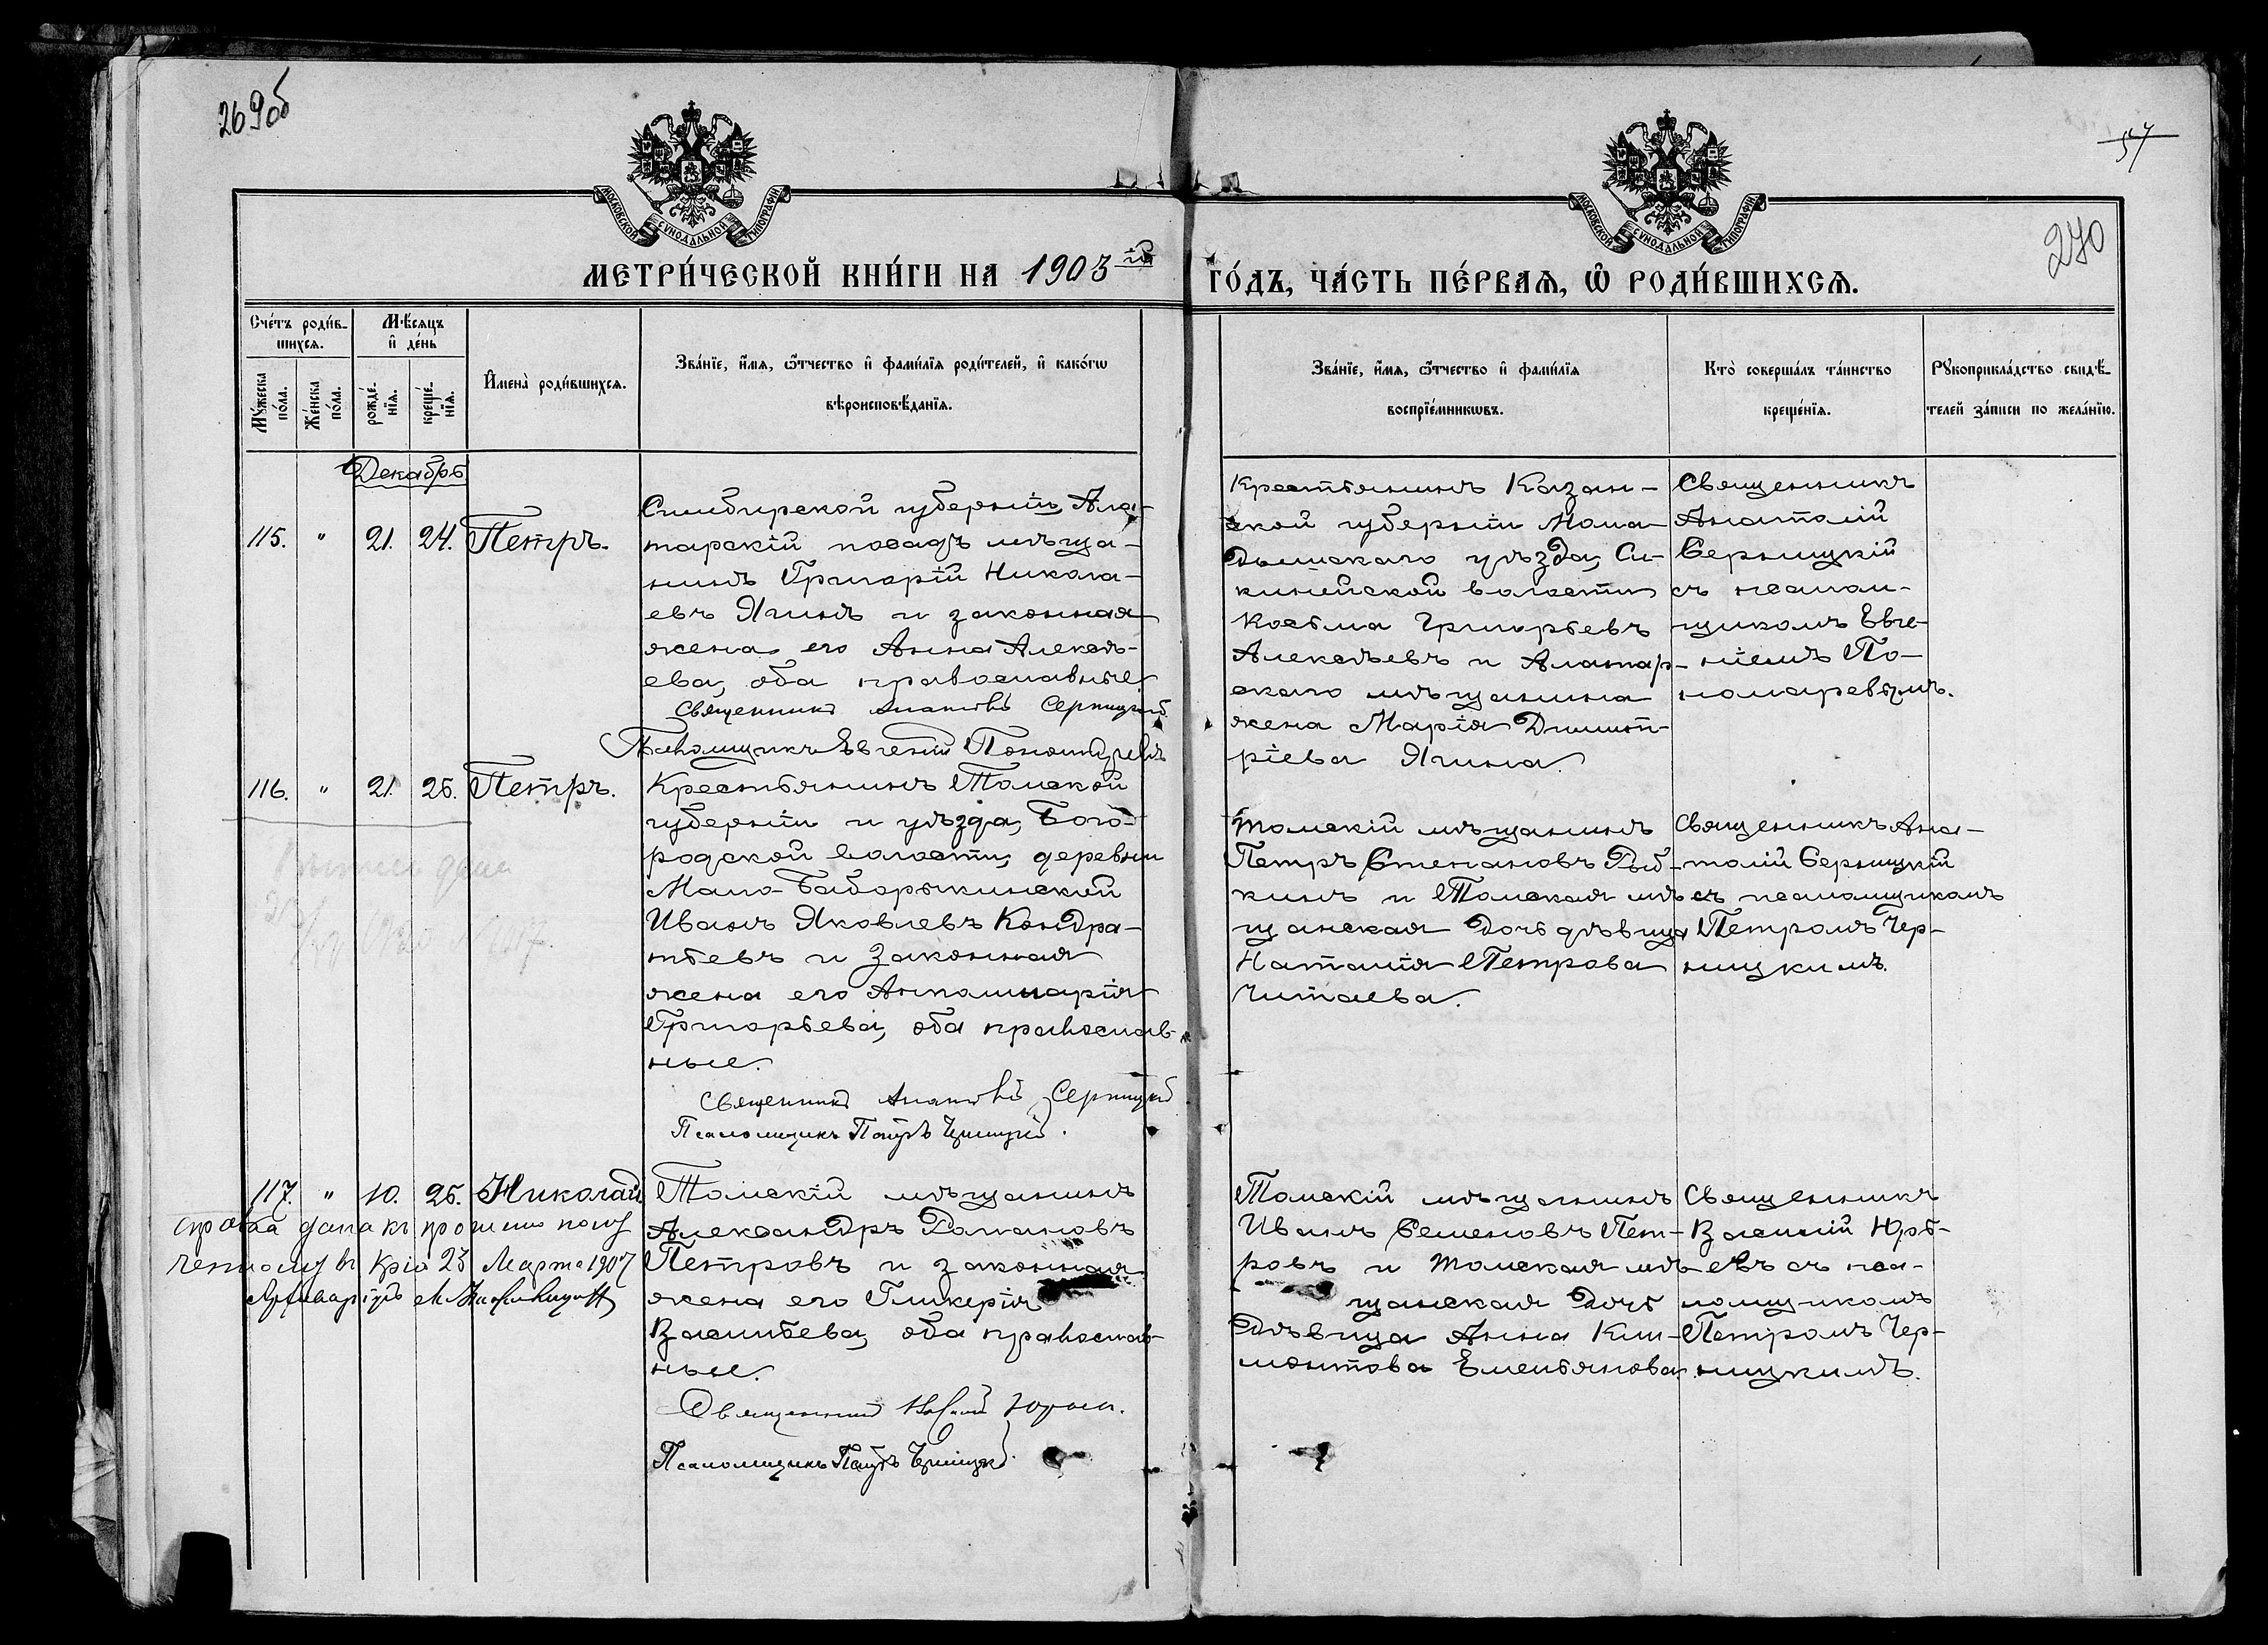 269об
57
270
МОСКОВСКОЙ СѴНОДАЛЬНОЙ ТИПОГРАФІИ
МОСКОВСКОЙ СѴНОДАЛЬНОЙ ТИПОГРАФІИ
МЕТРИ́ЧЕСКОЙ КНИ́ГИ НА 1903 ій ГО́ДЪ, ЧА́СТЬ ПЕ́РВАѦ, Ѡ҆ РОДИ́ВШИХСѦ.
Сче́тъ роди́в-
шихсѧ.
Мꙋ́жеска
по́ла.
Же́нска
по́ла.
Мѣ́сѧцъ
и҆ де́нь
рожде́-
нїѧ.
креще́-
нїѧ.
И҆мена̀ роди́вшихсѧ.
Зва́нїе, и҆́мѧ, ѻ҆́тчество и҆ фами́лїѧ роди́телей, и҆ како́гѡ
вѣроисповѣ́данїѧ.
Зва́нїе, и҆́мѧ, ѻ҆́тчество и҆ фами́лїѧ
воспрїе́мникѡвъ.
Кто̀ соверша́лъ та́инство
креще́нїѧ.
Рꙋкоприкла́дство свидѣ́-
телей за́писи по жела́нїю.
Декабрь
115. " 21. 24. Петръ.
Симбирской губерніи, Ала-
тарскій посадъ мѣща-
нинъ Григорій Никола-
евъ Ягинъ и законная
жена его Анна Алексѣ-
ева, оба православные
Священникъ Анатолій Серницкій
Псаломщикъ Евгеній Пономаревъ
Крестьянинъ Казан-
ской губерніи Мама-
дышскаго уѣзда, Си-
кинейской волости
Косьма Григорьевъ
Алексѣевъ и Алатар-
скаго мѣщанина
жена Марія Димит-
ріева Ягина.
Священникъ
Анатолій
Серницкій
съ псалом-
щикомъ Евге-
ніемъ По-
номаревымъ.
116. " 21. 26. Петръ.
Крестьянинъ Томской
губерніи и уѣзда, Бого-
родской волости, деревни
Мало-Бабарыкинской
Иванъ Яковлевъ Кондра-
тьевъ и законная
жена его Анполинарія
Григорьева, оба православ-
ные.
Священникъ Анатолій Серницкій
Псаломщикъ Петръ Черницкій.
Томскій мѣщанинъ
Петръ Степановъ Рыб-
кинъ и Томская мѣ-
щанская дочь дѣвица
Наталія Петрова
Читаева.
Священникъ Ана-
толій Серницкій
съ псаломщикомъ
Петромъ Чер-
ницкимъ.
117. " 10. 26. Николай
дана къ
Марта 1907
Томскій мѣщанинъ
Александръ Романовъ
Петровъ и законная
жена его Гликерія
Васильева, оба православ-
ные.
Священникъ Василій Юрьевъ.
Псаломщикъ Петръ Черницкій.
Томскій мѣщанинъ
Иванъ Семеновъ Пет-
ровъ и Томская мѣ-
щанская дочь
дѣвица Анна Кли-
монтова Емельянова.
Священникъ
Василій Юрь-
евъ съ пса-
ломщикомъ
Петромъ Чер-
ницкимъ.